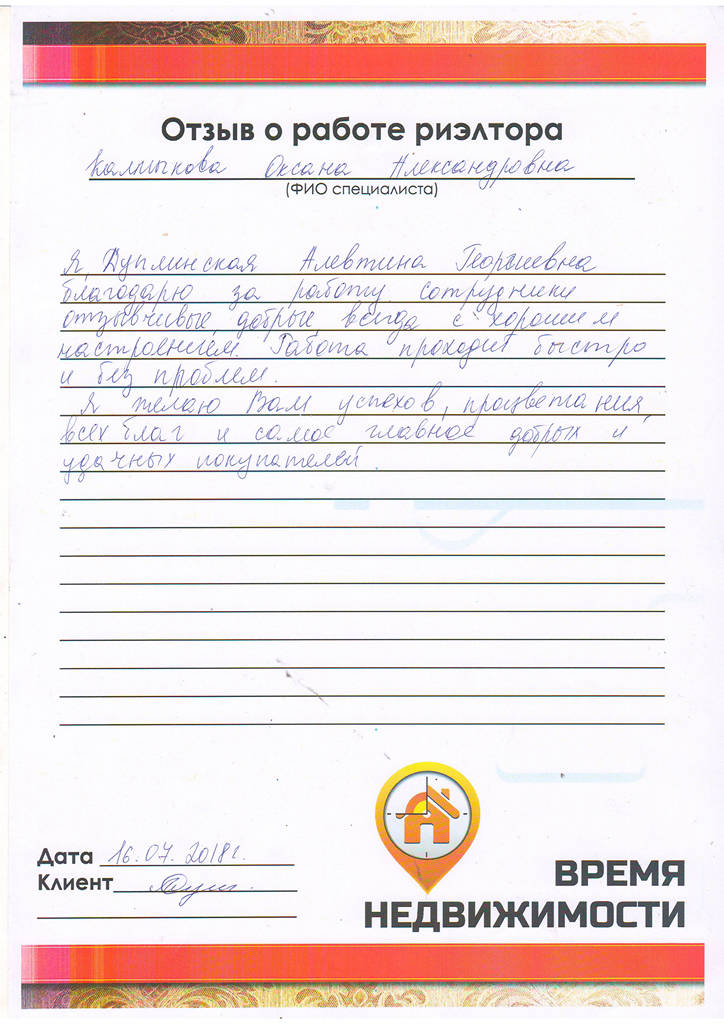 Отзыв о работе риэлтора
Калмыкова Оксана Александровна
(ФИО специалиста)
Я, Дуплинская Алевтина Георгиевна
благодарю за работу сотрудники
отзывчивые, добрые, всегда с хорошим
настроением. Работа проходит быстро
и без проблем.
Я желаю Вам успехов, процветания,
всех благ и самое главное добрых и
удачных покупателей.
Дата 16.07.2018г.
Клиент
ВРЕМЯ
НЕДВИЖИМОСТИ